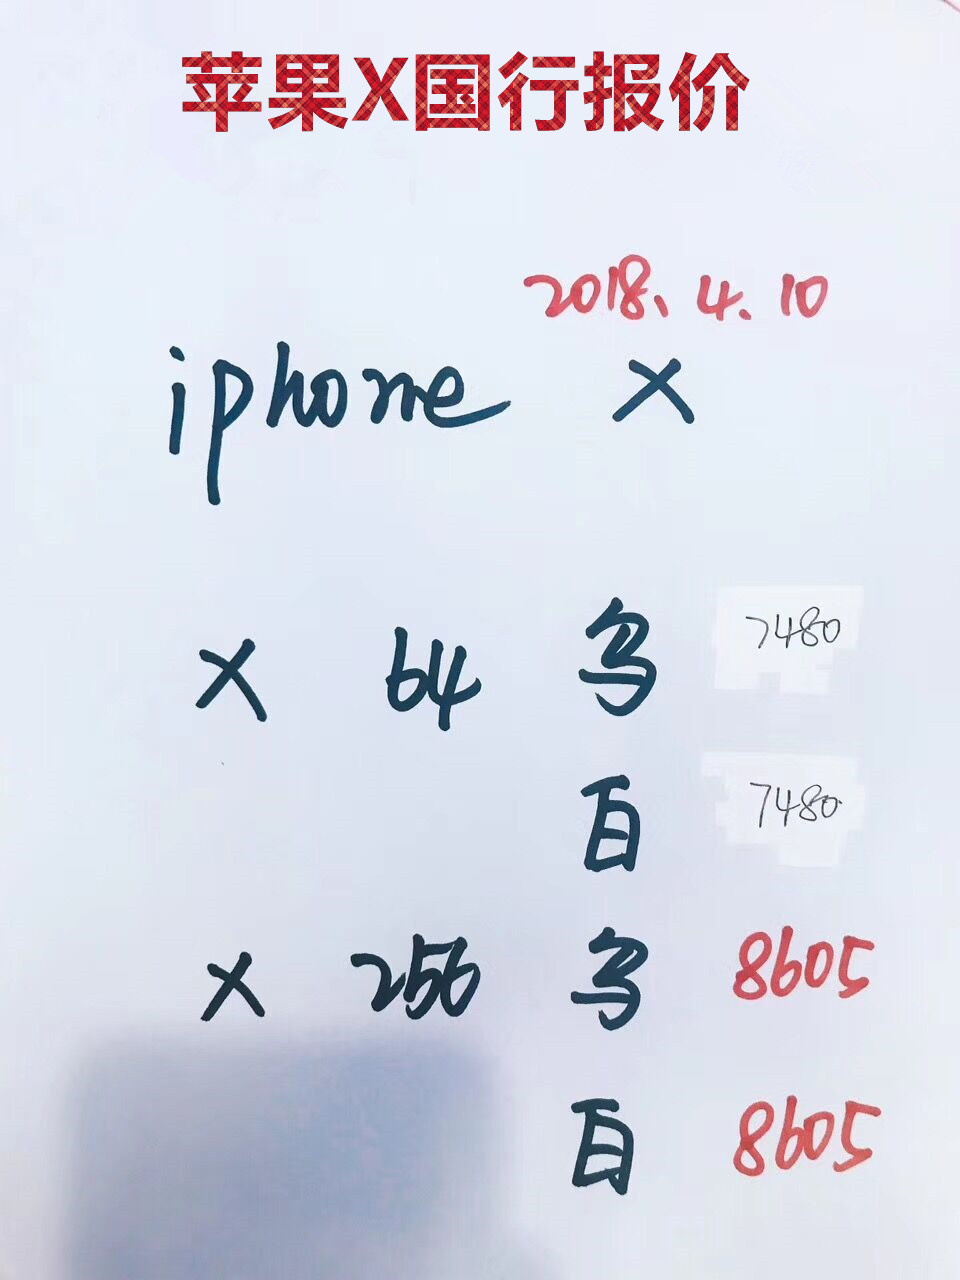 苹果X国行报价
2018.4.10
iphone X
X 64 乌 7480
白 7480
X 256 乌 8605
白 8605